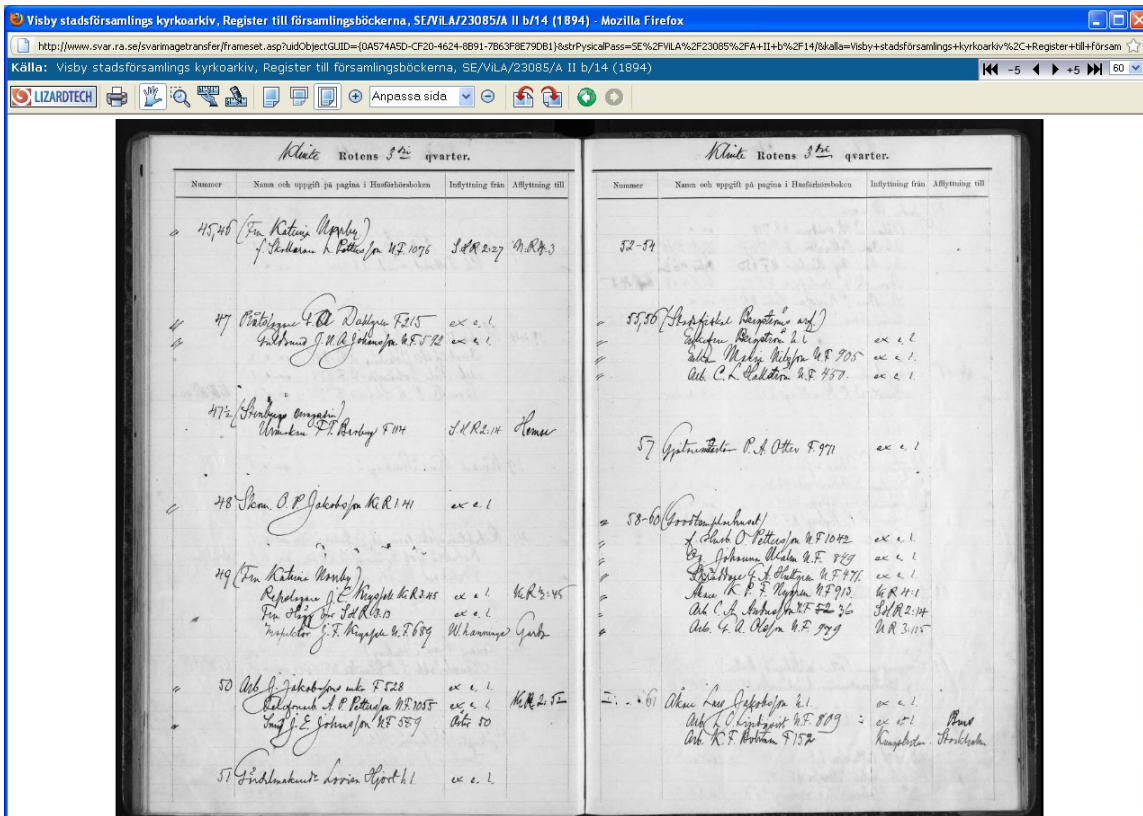 Visby stadsförsamlings kyrkoarkiv, Register till församlingsböckerna, SE/ViLA/23085/A II b/14 (1894) - Mozilla Firefox
http://www.svar.ra.se/svarimagetransfer/frameset.asp?uidObjectGUID={0A574A5D-CF20-4624-8B91-7B63F8E79DB1}&strPysicalPass=SE%2FViLA%2F23085%2FA+II+b%2F14/&kalla=Visby+stadsförsamlings+kyrkoarkiv%2C+Register+till+försam
Källa: Visby stadsförsamlings kyrkoarkiv, Register till församlingsböckerna, SE/ViLA/23085/A II b/14 (1894)
-5 +5 60
LIZARDTECH Anpassa sida
Klinte Rotens 3die qvarter.
Nummer Namn och uppgift på pagina i Husförhörsboken Inflyttning från Afflyttning till
45,46 (Fru Katrina Norrby)
L. Pettersson N.F. 1076 S.H.R 2:27 N.R. 4:3
47 Dahlgren F 215 ex e. l.
Guldsmed J. N. A. Johansson N.F. 592 ex e. l.
47½ (Stenbergs magasin)
Urmakare F. T. Barberg F 114 S.H.R 2:14 Hemse
48 Skom. O. P. Jakobsson Kl.R 1:41 ex e. l.
49 (Fru Katrina Norrby)
Repslagare J. E. Kl.R 3:45 ex e. l. Kl.R 3:45
Fru S.H.R 3:13 ex e. l.
Inspektor J. F. N.F. 689 Garda
50 Arb. J. Jakobssons enka F 528 ex e. l.
A. P. Pettersson N.F. 1055 ex e. l. Kl.R 2:52
Smed J. E. Johansson N.F. 589 50
51 Lovisa Hjort h. l. ex e. l.
Klinte Rotens 3die qvarter.
Nummer Namn och uppgift på pagina i Husförhörsboken Inflyttning från Afflyttning till
52-54
55,56 (Stadsfiskal Bergströms arf.)
Enkefru Bergström h. l. ex e. l.
Enkan Maria Nilsson N.F. 905 ex e. l.
Arb. C. L. Hallström N.F. 450. ex e. l.
57 P. A. Otter F. 971 ex e. l.
58-60 (Goodtemplarhuset)
O. Pettersson N.F 1042 ex e. l.
Johanna Malm N.F. 849 ex e. l.
Skräddare G. A. Hultgren N.F 471. ex e. l.
Åkare K. P. F. Nygren N.F 913. Kl.R 4:1
Arb C. A. Andersson N.F 36 S.H.R 2:14
Arb. G. A. Olsson N.F. 949 N.R 3:115
61 Åkare Lars Jakobsson h. l. ex e. l.
Arb. L. O. Lindqvist N.F. 809 ex e. l. Burs
Arb. K. F. Boström F 152 Stockholm